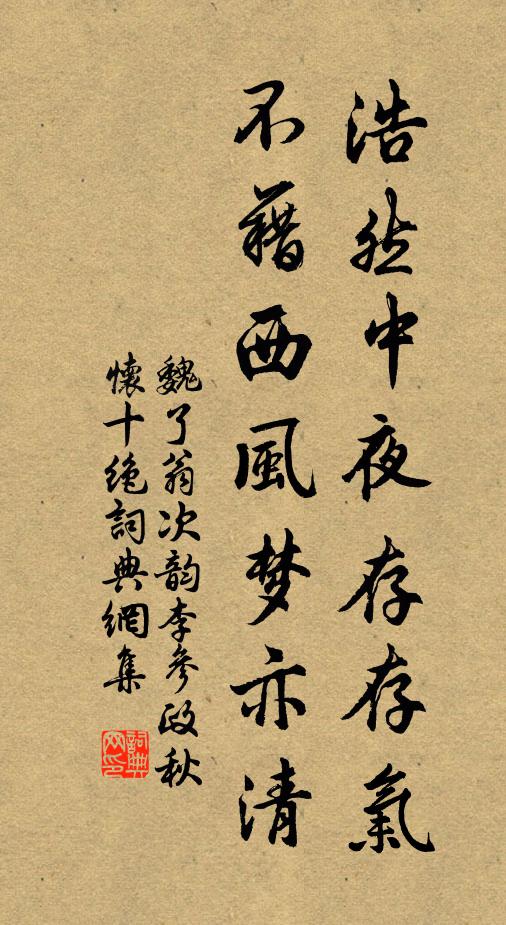 浩然中夜存存氣
不藉西風梦亦清
魏了翁次韵李參政秋
懷十绝詞典網集
詞典網印